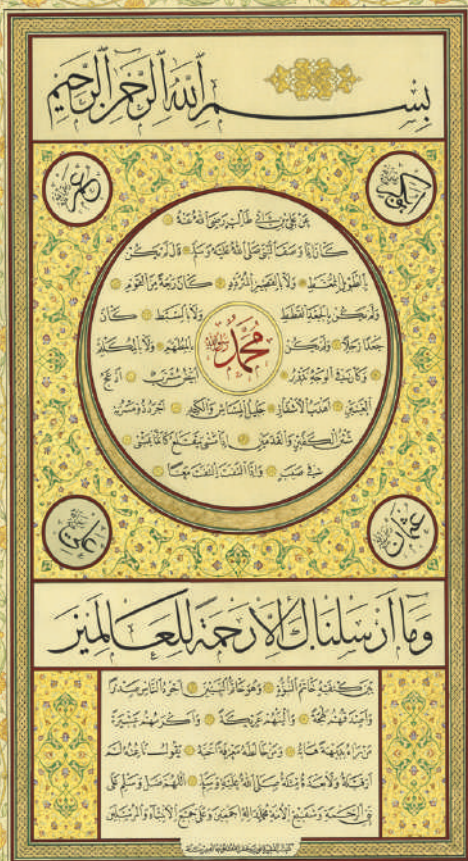 بسم الله الرحمن الرحيم
ابوبكر
عمر
عن علي بن ابي طالب رضي الله عنه
كان اذا وصف النبي صلى الله عليه وسلم قال لم يكن
بالطويل الممغط ولا بالقصير المتردد كان ربعة من القوم
ولم يكن بالجعد القطط ولا بالسبط كان
جعدا رجلا ولم يكن بالمطهم ولا بالمكلثم
محمد
وكان في الوجه تدوير ابيض مشرب ادعج
العينين اهدب الاشفار جليل المشاش والكتد اجرد ذو مسربة
شثن الكفين والقدمين اذا مشى يتقلع كانما يمشي
في صبب واذا التفت التفت معا
عثمان
علي
وما ارسلناك الا رحمة للعالمين
بين كتفيه خاتم النبوة وهو خاتم النبيين اجود الناس صدرا
واصدقهم لهجة والينهم عريكة واكرمهم عشيرة
من راه بديهة هابه ومن خالطه معرفة احبه يقول ناعته لم
ار قبله ولا بعده مثله صلى الله عليه وسلم اللهم صل وسلم على
نبي الرحمة وشفيع الامة محمد واله اجمعين وعلى جميع الانبياء والمرسلين